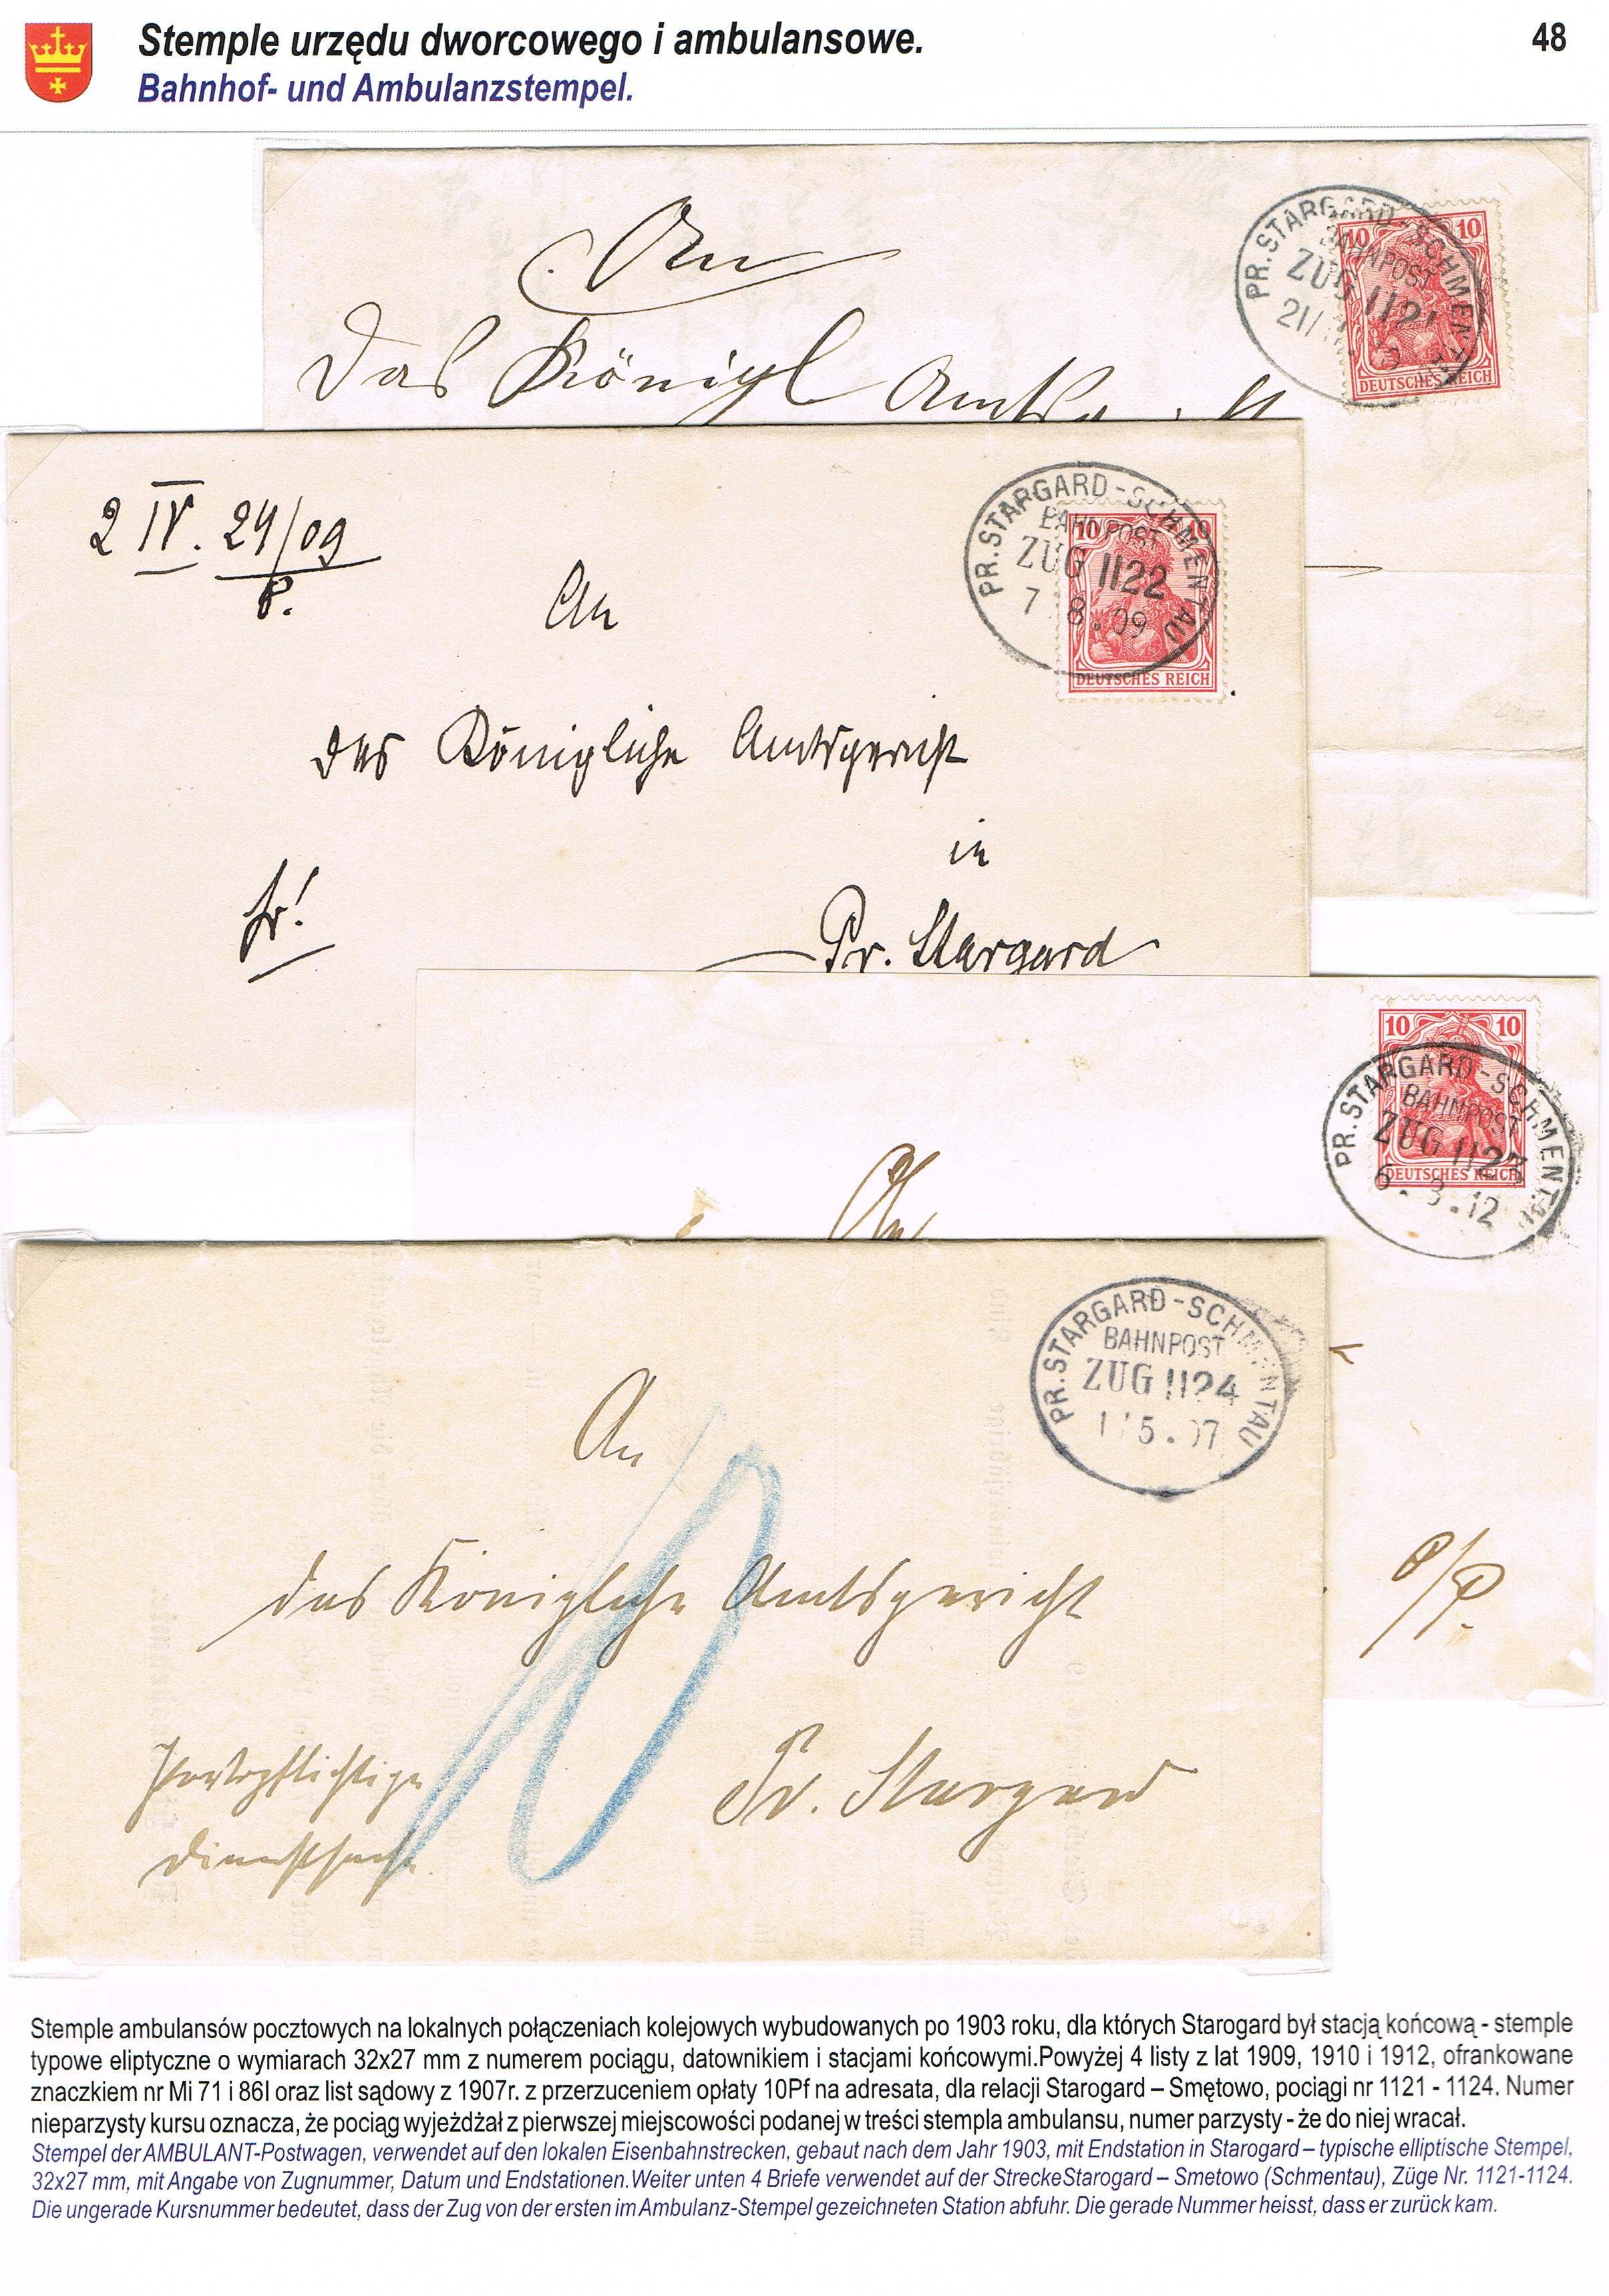 Stemple urzędu dworcowego i ambulansowe.
48
Bahnhof- und Ambulanzstempel.
An
PR. STARGARD - SCHMENTAU
BAHNPOST
ZUG 1121
10 10
DEUTSCHES REICH
das Königl
2 IV. 24/09
P.
PR. STARGARD - SCHMENTAU
BAHNPOST
ZUG 1122
7 8.09
10 10
DEUTSCHES REICH
An
das Königliche Amtsgericht
in
fr!
Pr. Stargard
10 10
DEUTSCHES REICH
PR. STARGARD - SCHMENTAU
BAHNPOST
ZUG 1123
6. 3.12
An
PR. STARGARD - SCHMENTAU
BAHNPOST
ZUG 1124
5.07
An
das Königliche Amtsgericht
10
Portopflichtige
Dienstsache.
Pr. Stargard
Stemple ambulansów pocztowych na lokalnych połączeniach kolejowych wybudowanych po 1903 roku, dla których Starogard był stacją końcową - stemple
typowe eliptyczne o wymiarach 32x27 mm z numerem pociągu, datownikiem i stacjami końcowymi.Powyżej 4 listy z lat 1909, 1910 i 1912, ofrankowane
znaczkiem nr Mi 71 i 86I oraz list sądowy z 1907r. z przerzuceniem opłaty 10Pf na adresata, dla relacji Starogard – Smętowo, pociągi nr 1121 - 1124. Numer
nieparzysty kursu oznacza, że pociąg wyjeżdżał z pierwszej miejscowości podanej w treści stempla ambulansu, numer parzysty - że do niej wracał.
Stempel der AMBULANT-Postwagen, verwendet auf den lokalen Eisenbahnstrecken, gebaut nach dem Jahr 1903, mit Endstation in Starogard – typische elliptische Stempel,
32x27 mm, mit Angabe von Zugnummer, Datum und Endstationen.Weiter unten 4 Briefe verwendet auf der StreckeStarogard – Smetowo (Schmentau), Züge Nr. 1121-1124.
Die ungerade Kursnummer bedeutet, dass der Zug von der ersten im Ambulanz-Stempel gezeichneten Station abfuhr. Die gerade Nummer heisst, dass er zurück kam.